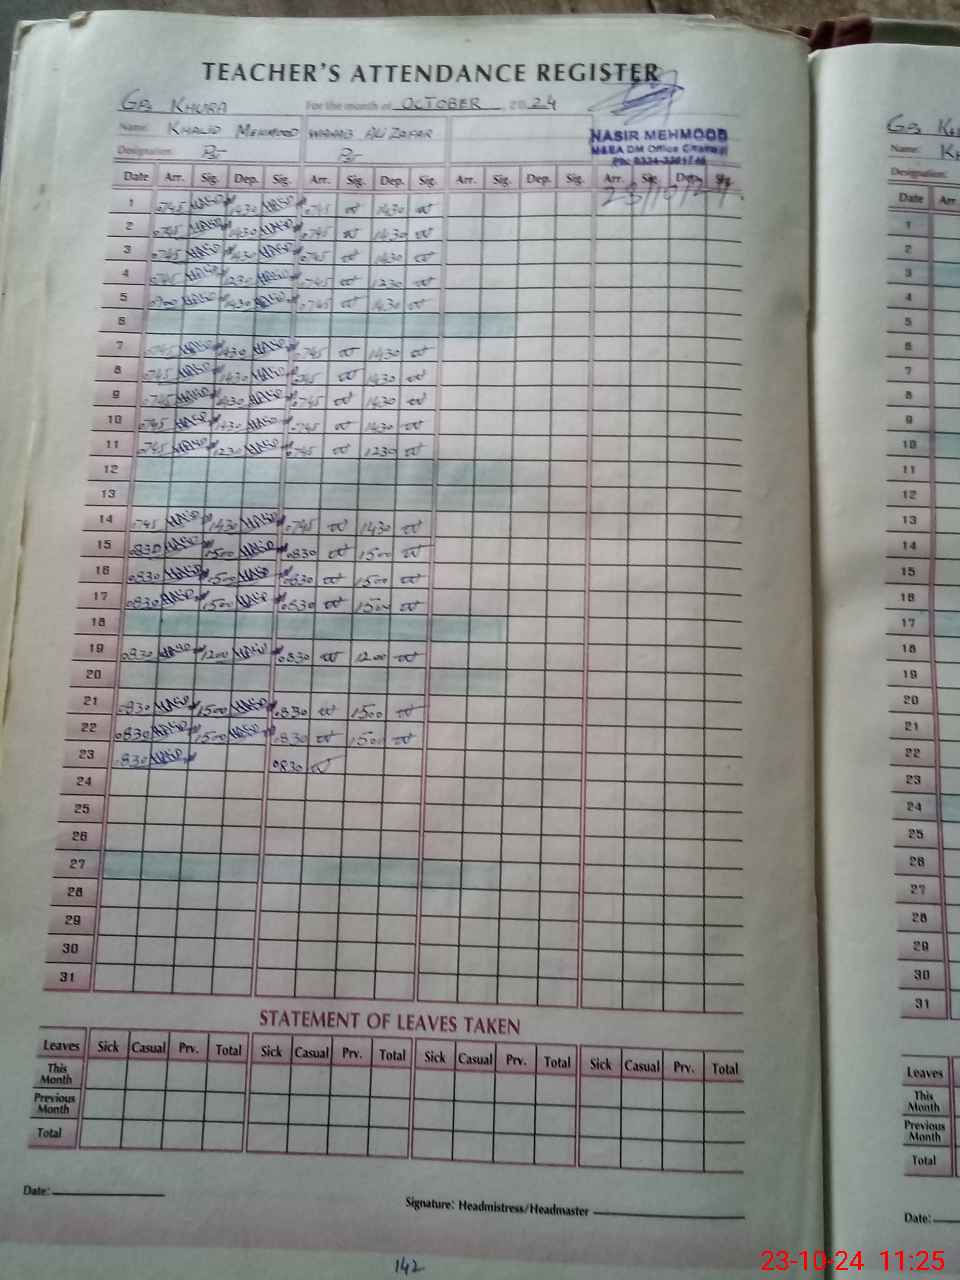 TEACHER'S ATTENDANCE REGISTER
GPS KHURA For the month of OCTOBER 20 24
Name: KHALID MEHMOOD WAHAB ALI ZAFAR
NASIR MEHMOOD
M&EA DM Office
Designation:
Date Arr. Sig. Dep. Sig. Arr. Sig. Dep. Sig. Arr. Sig. Dep. Sig. Arr. Sig. Dep. Sig.
23/10/24
1 0745 1430 0745 1430
2 0745 1430 0745 1430
3 0745 1430 0745 1430
4 0745 1230 0745 1230
5 0900 1430 0745 1430
6
7 0745 1430 0745 1430
8 0745 1430 0745 1430
9 0745 1430 0745 1430
10 0745 1430 0745 1430
11 0745 1230 0745 1230
12
13
14 0745 1430 0745 1430
15 0830 1500 0830 1500
16 0830 1500 0830 1500
17 0830 1500 0830 1500
18
19 0830 1200 0830 1200
20
21 0830 1500 0830 1500
22 0830 1500 0830 1500
23 0830 0830
24
25
26
27
28
29
30
31
STATEMENT OF LEAVES TAKEN
Leaves Sick Casual Prv. Total Sick Casual Prv. Total Sick Casual Prv. Total Sick Casual Prv. Total
This Month
Previous Month
Total
Date:
Signature: Headmistress/Headmaster
142
Name:
Designation:
Date Arr.
1
2
3
4
5
6
7
8
9
10
11
12
13
14
15
16
17
18
19
20
21
22
23
24
25
26
27
28
29
30
31
Leaves
This Month
Previous Month
Total
Date:
23-10-24 11:25